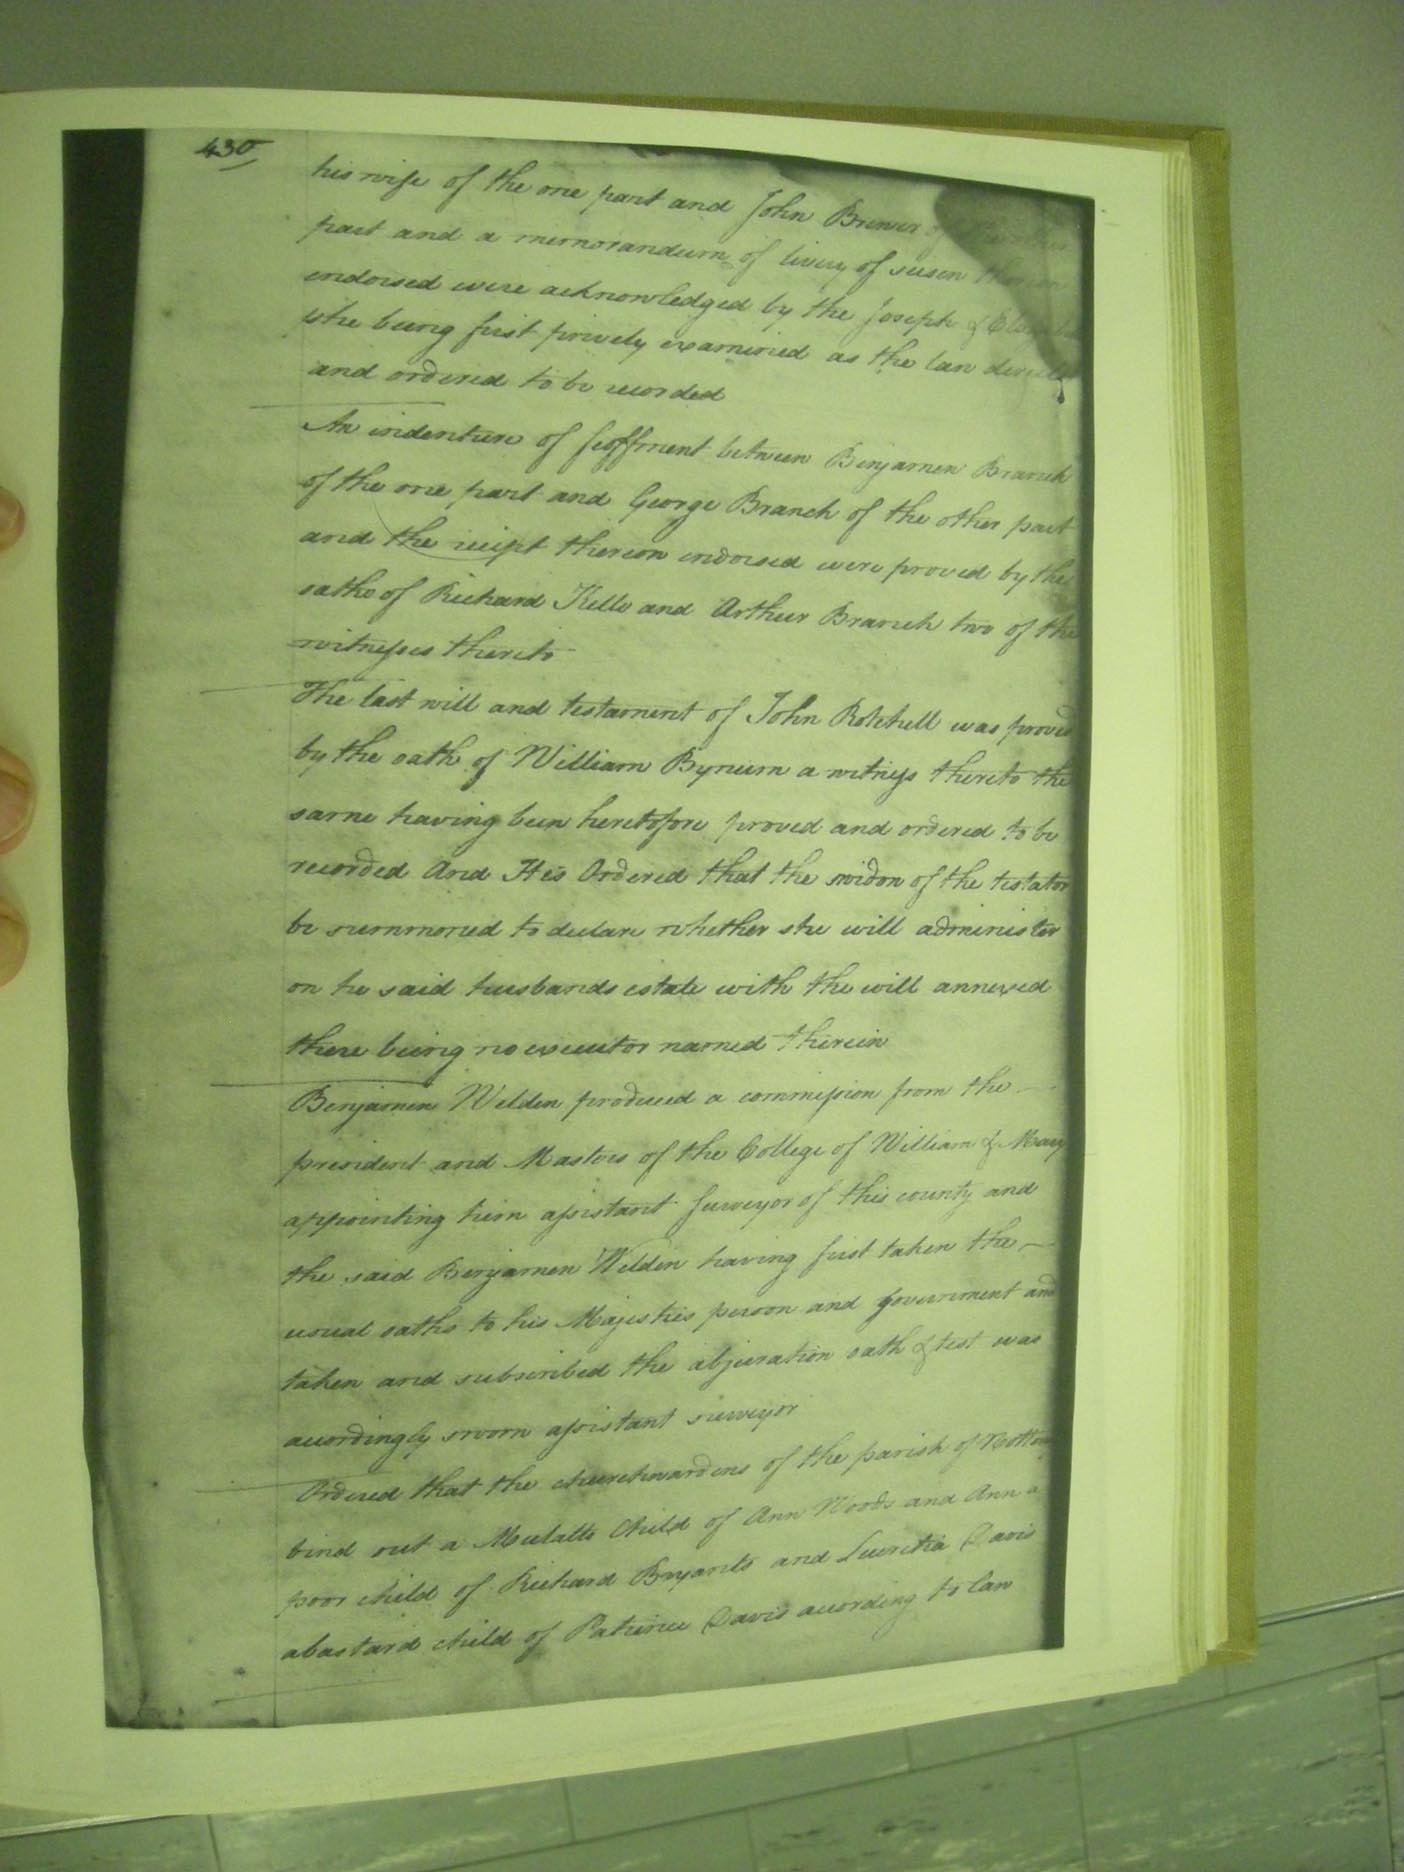 430
his wife of the one part and John Brewer of
part and a memorandum of livery of seisen thereon
endorsed were acknowledged by the Joseph &
she being first prively examined as the law directs
and ordered to be recorded
An indenture of feoffment between Benjamen Branch
of the one part and George Branch of the other part
and the reciept thereon endorsed were proved by the
oaths of Richard Kello and Arthur Branch two of the
witnesses thereto
The last will and testament of John Rotchell was proved
by the oath of William Bynum a witness thereto the
same having been heretofore proved and ordered to be
recorded And It is Ordered that the widow of the testator
be summoned to declare whether she will administer
on he said husbands estate with the will annexed
there being no executor named therein
Benjamen Weldin produced a commission from the
president and Masters of the College of William & Mary
appointing him assistant Surveyor of this county and
the said Benjamen Weldin having first taken the
usual oaths to his Majesties person and government and
taken and subscribed the abjuration oath & test was
accordingly sworn assistant surveyor
Ordered that the churchwardens of the parish of Nottow
bind out a Mulatto Child of Ann Woods and Ann a
poor child of Richard Bryants and Lucretia Davis
abastard child of Patience Davis acording to law